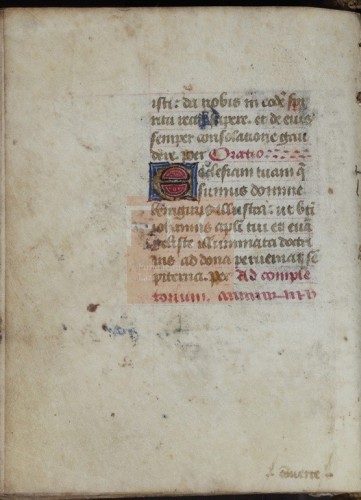 isti: da nobis in eodē spi
ritu recta sapere. et de eius
semper consolatione gau
dere. per Oratio
Ecclesiam tuam q̄
sumus domine
benignus illustra: ut bti
iohannis apli tui et euā
geliste illuminata doctri
nis ad dona perueniat se
piterna. per Ad comple
torium.